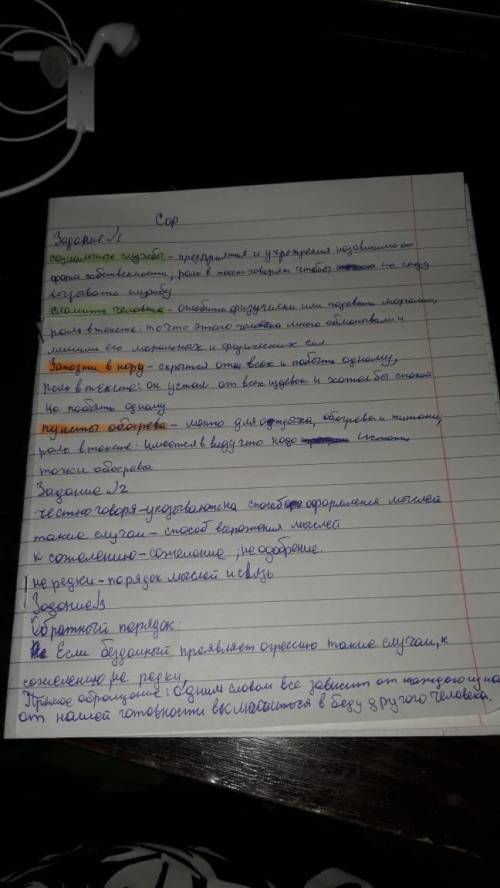 Сор
Задание №1
социальные службы - предприятия и учреждения независимо от
форм собственности, роль в тексте говорят чтобы не сразу
вызывать службу
сломить человека - ослабить физически или подавить морально,
роль в тексте: то что этого человека много обманывали и
лишили его моральных и физических сил
Заползти в нору - скрыться ото всех и побыть одному,
роль в тексте: он устал от всех и хотел бы спокой
но побыть одному
пункты обогрева - место для отдыха, обогрева и питания,
роль в тексте: имеется в виду что надо
точки обогрева
Задание №2
честно говоря - указывают на способ оформления мыслей
такие случаи - способ выражения мыслей
к сожелению - сожеление, неодобрение.
не редки - порядок мыслей и связь
Задание №3
Обратный порядок:
Если бездомный проявляет огрессию такие случаи, к
сожелению, не редки,
Прямое обращение: Одним словом все зависит от каждого из нас
от нашей готовности вмешиться в беду другого человека.